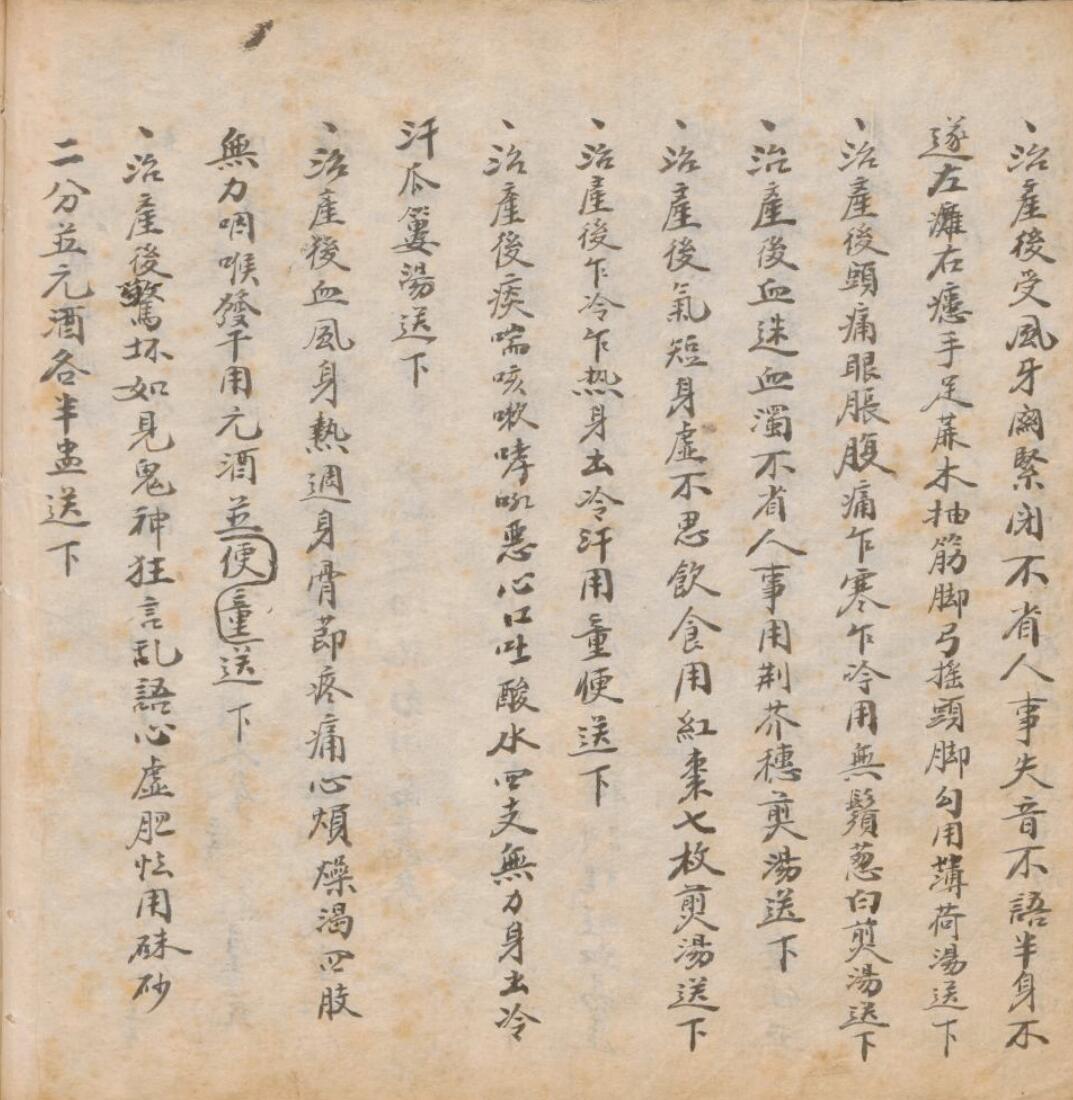 、治產後受風牙関緊闭不省人事失音不語半身不
遂左灘右瘓手足蔴木抽筋脚弓摇頭脚勾用薄荷湯送下
、治產後頭痛眼脹腹痛乍寒乍冷用無鬚葱白煎湯送下
、治產後血迷血濁不省人事用荆芥穗煎湯送下
、治產後氣短身虚不思飲食用紅棗七枚煎湯送下
、治產後乍冷乍热身出冷汗用童便送下
、治產後痰喘咳嗽哮吼惡心口吐酸水四支無力身出冷
汗瓜蔞湯送下
、治產後血風身熱週身骨節疼痛心煩燥渴四肢
無力咽喉發干用元酒並便童送下
、治產後驚坏如見鬼神狂言乱語心虚胆怯用硃砂
二分並元酒各半盅送下